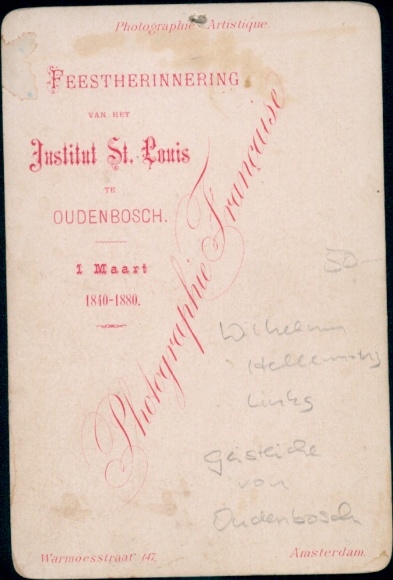 Photographie Artistique.
FEESTHERINNERING
VAN HET
Institut St. Louis
TE
OUDENBOSCH.
1 Maart
1840-1880.
Photographie Française
50-
Wilhelm
Hellemons
links
Geistliche
von
Oudenbosch
Warmoesstraat 147.
Amsterdam.